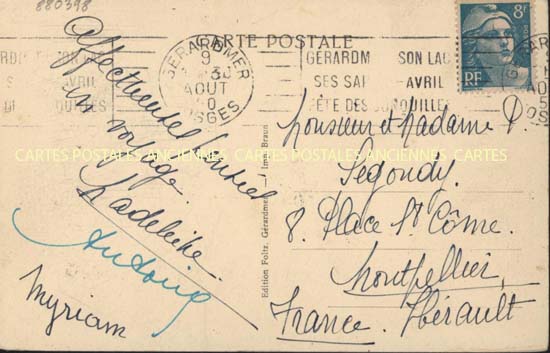 880398
CARTE POSTALE
GÉRARDMER
9
30
AOUT
VOSGES
GÉRARDM SON LAC
SES SAP AVRIL
FÊTE DES JONQUILLES
8F
RF
Affectueuse
un voyage.
Madeleine
Antoine
Myriam
Edition Foltz, Gérardmer - Imp. Braun
Monsieur et Madame P.
Segondy.
8. Place St Côme.
Montpellier
France. Hérault
CARTES POSTALES ANCIENNES CARTES POSTALES ANCIENNES CARTES